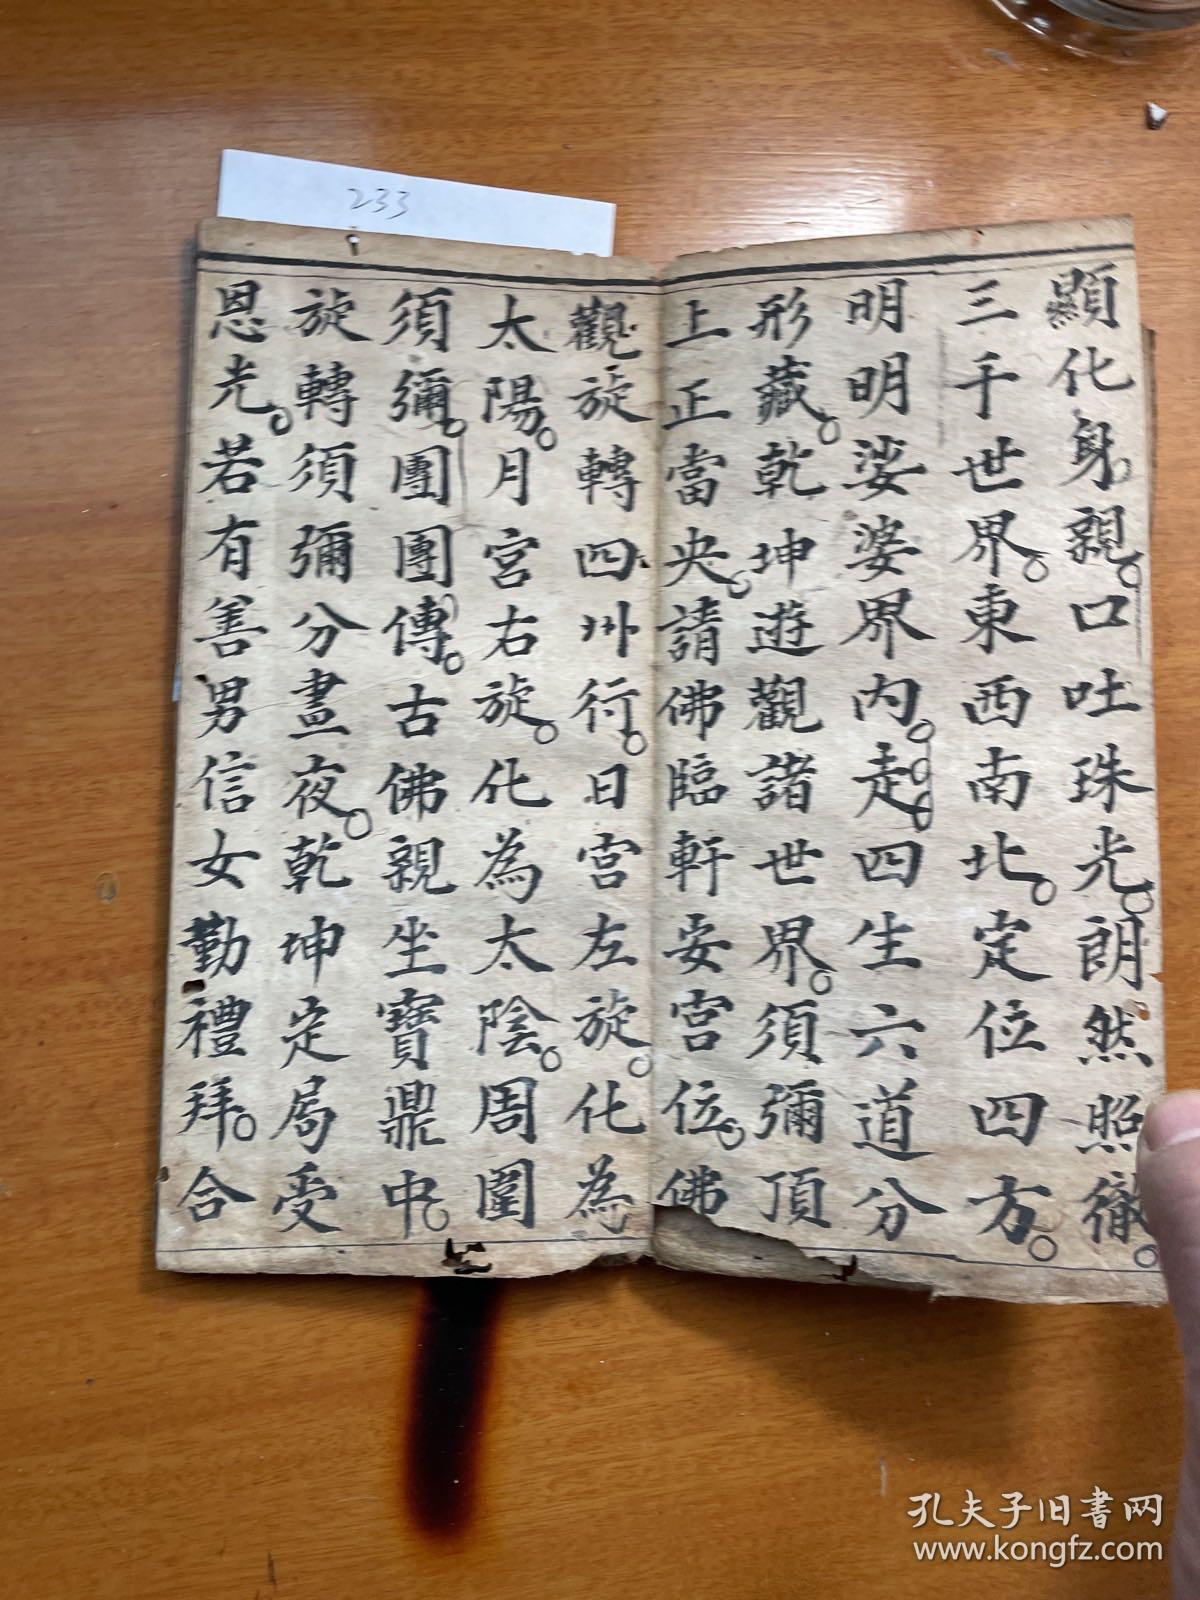 233
顯化身。親。口吐珠光。朗然照徹。
三千世界。東西南北。定位四方。
明明娑婆界内。走。。四生六道分
形藏。乾坤遊觀諸世界。須彌頂
上正當央。請佛臨軒安宫位。佛
觀旋轉四州行。日宫左旋。化為
太陽。月宫右旋。化為太陰。周圍
須彌。團團傳。古佛親坐寶鼎中。
旋轉須彌分晝夜。乾坤定局受
恩光。若有善男信女勤禮拜。合
孔夫子旧书网
www.kongfz.com